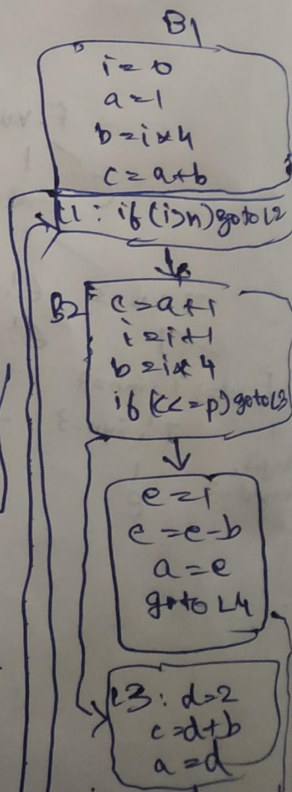 B1
i=0
a=1
b=i*4
c=a+b
L1: if(i>n)goto L2
B2
c=a+1
i=i+1
b=i*4
if(c<=p)goto L3
e=1
e=e-b
a=e
goto L4
L3: d=2
c=d+b
a=d